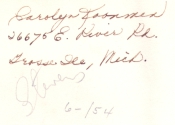 Carolyn Koonmen
26675 E. River Rd.
Grosse Ile, Mich.
6-/54